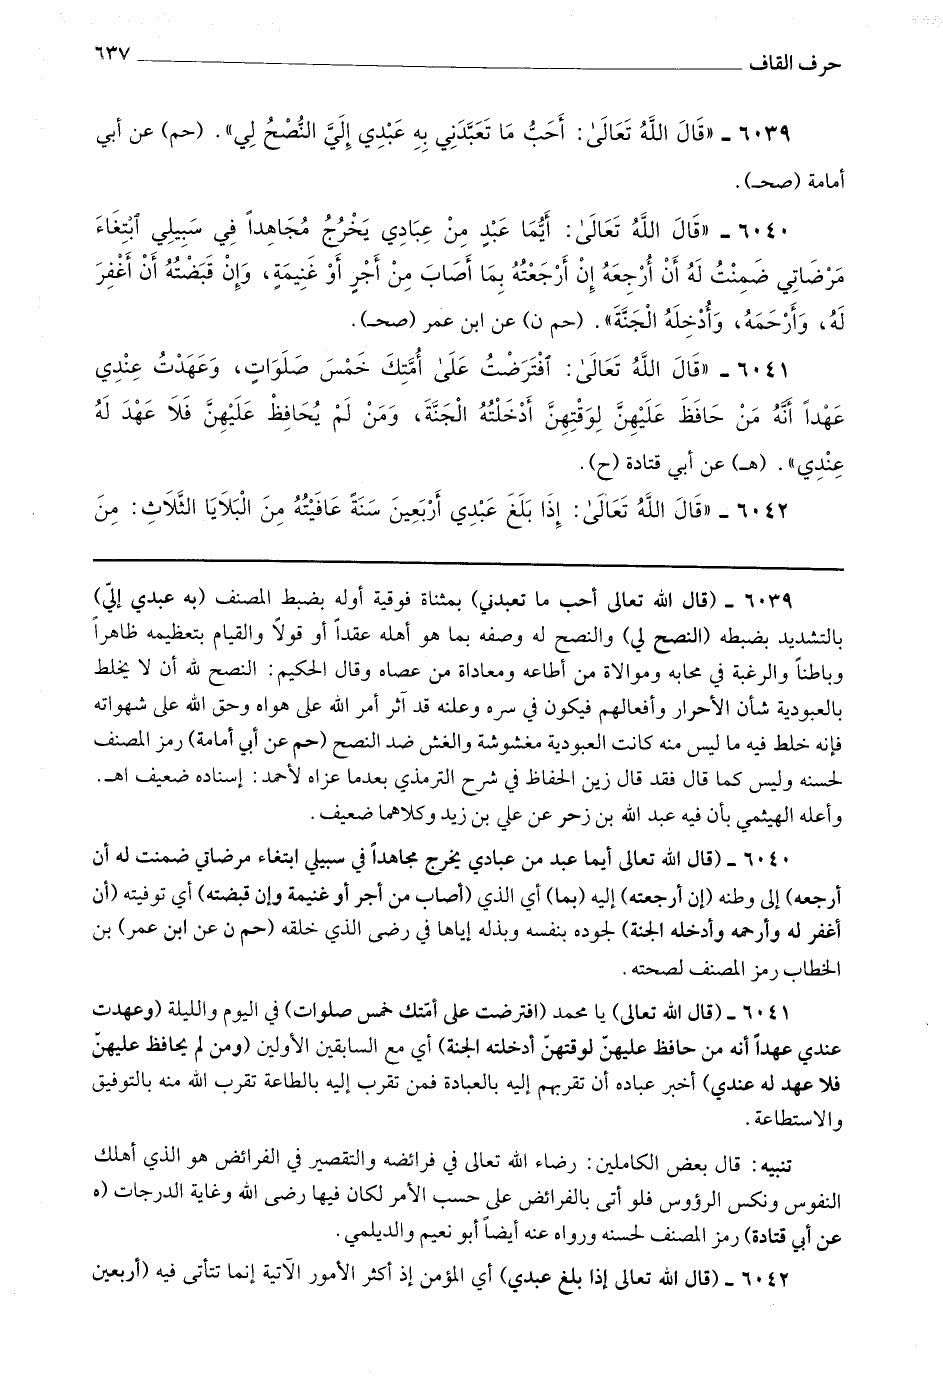 حرف القاف ٦٣٧
٦٠٣٩ ـ «قَالَ اللَّهُ تَعَالَىٰ: أَحَبُّ مَا تَعَبَّدَنِي بِهِ عَبْدِي إِلَيَّ النُّصْحُ لِي». (حم) عن أبي
أمامة (صحـ).
٦٠٤٠ ـ «قَالَ اللَّهُ تَعَالَىٰ: أَيُّمَا عَبْدٍ مِنْ عِبَادِي يَخْرُجُ مُجَاهِداً فِي سَبِيلِي ٱبْتِغَاءَ
مَرْضَاتِي ضَمِنْتُ لَهُ أَنْ أُرْجِعَهُ إِنْ أَرْجَعْتُهُ بِمَا أَصَابَ مِنْ أَجْرٍ أَوْ غَنِيمَةٍ، وَإِنْ قَبَضْتُهُ أَنْ أَغْفِرَ
لَهُ، وَأَرْحَمَهُ، وَأُدْخِلَهُ الْجَنَّةَ». (حم ن) عن ابن عمر (صحـ).
٦٠٤١ ـ «قَالَ اللَّهُ تَعَالَىٰ: ٱفْتَرَضْتُ عَلَىٰ أُمَّتِكَ خَمْسَ صَلَوَاتٍ، وَعَهَدْتُ عِنْدِي
عَهْداً أَنَّهُ مَنْ حَافَظَ عَلَيْهِنَّ لِوَقْتِهِنَّ أَدْخَلْتُهُ الْجَنَّةَ، وَمَنْ لَمْ يُحَافِظْ عَلَيْهِنَّ فَلَا عَهْدَ لَهُ
عِنْدِي». (هـ) عن أبي قتادة (ح).
٦٠٤٢ ـ «قَالَ اللَّهُ تَعَالَىٰ: إِذَا بَلَغَ عَبْدِي أَرْبَعِينَ سَنَةً عَافَيْتُهُ مِنَ الْبَلَايَا الثَّلَاثِ: مِنَ
٦٠٣٩ ـ (قال الله تعالى أحب ما تعبدني) بمثناة فوقية أوله بضبط المصنف (به عبدي إليّ)
بالتشديد بضبطه (النصح لي) والنصح له وصفه بما هو أهله عقداً أو قولاً والقيام بتعظيمه ظاهراً
وباطناً والرغبة في محابه وموالاة من أطاعه ومعاداة من عصاه وقال الحكيم: النصح لله أن لا يخلط
بالعبودية شأن الأحرار وأفعالهم فيكون في سره وعلنه قد آثر أمر الله على هواه وحق الله على شهواته
فإنه خلط فيه ما ليس منه كانت العبودية مغشوشة والغش ضد النصح (حم عن أبي أمامة) رمز المصنف
لحسنه وليس كما قال فقد قال زين الحفاظ في شرح الترمذي بعدما عزاه لأحمد: إسناده ضعيف اهـ.
وأعله الهيثمي بأن فيه عبد الله بن زحر عن علي بن زيد وكلاهما ضعيف.
٦٠٤٠ ـ (قال الله تعالى أيما عبد من عبادي يخرج مجاهداً في سبيلي ابتغاء مرضاتي ضمنت له أن
أرجعه) إلى وطنه (إن أرجعته) إليه (بما) أي الذي (أصاب من أجر أو غنيمة وإن قبضته) أي توفيته (أن
أغفر له وأرحمه وأدخله الجنة) لجوده بنفسه وبذله إياها في رضى الذي خلقه (حم ن عن ابن عمر) بن
الخطاب رمز المصنف لصحته.
٦٠٤١ ـ (قال الله تعالى) يا محمد (افترضت على أمّتك خمس صلوات) في اليوم والليلة (وعهدت
عندي عهداً أنه من حافظ عليهنّ لوقتهنّ أدخلته الجنة) أي مع السابقين الأولين (ومن لم يحافظ عليهنّ
فلا عهد له عندي) أخبر عباده أن تقربهم إليه بالعبادة فمن تقرب إليه بالطاعة تقرب الله منه بالتوفيق
والاستطاعة.
تنبيه: قال بعض الكاملين: رضاء الله تعالى في فرائضه والتقصير في الفرائض هو الذي أهلك
النفوس ونكس الرؤوس فلو أتى بالفرائض على حسب الأمر لكان فيها رضى الله وغاية الدرجات (ه
عن أبي قتادة) رمز المصنف لحسنه ورواه عنه أيضاً أبو نعيم والديلمي.
٦٠٤٢ ـ (قال الله تعالى إذا بلغ عبدي) أي المؤمن إذ أكثر الأمور الآتية إنما تتأتى فيه (أربعين